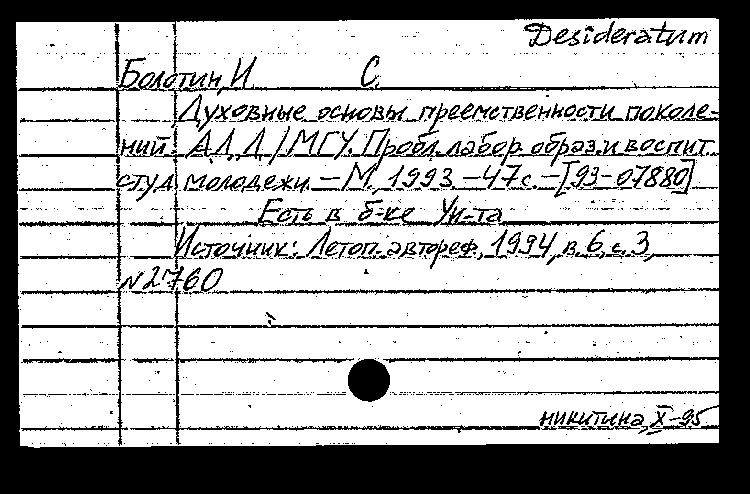 Desideratum
Болотин, И. С.
Духовные основы преемственности поколе-
ний: А.Д.Д / МГУ. Пробл. лабор. образ. и воспит.
студ. молодежи. – М., 1993. – 47 с. – [93-07880]
Есть в б-ке Ун-та
Источник: Летоп. автореф., 1994, в. 6, с. 3,
№2760
никитина, X-95